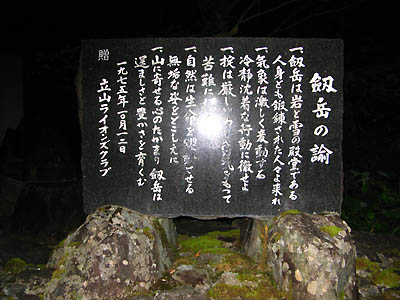 劔岳の諭
一、劔岳は岩と雪の殿堂である
人身とも鍛錬された人々よ来れ
一、気象は激しく変動する
冷静沈着な行動に徹せよ
一、掟は厳しい をもって
苦難に
一、自然は生 させる
無垢な姿をとこしえに
一、山に寄せる心のたかまり 劔岳は
逞ましさと豊かさを育くむ
一九七五年一〇月一二日
立山ライオンズクラブ
贈